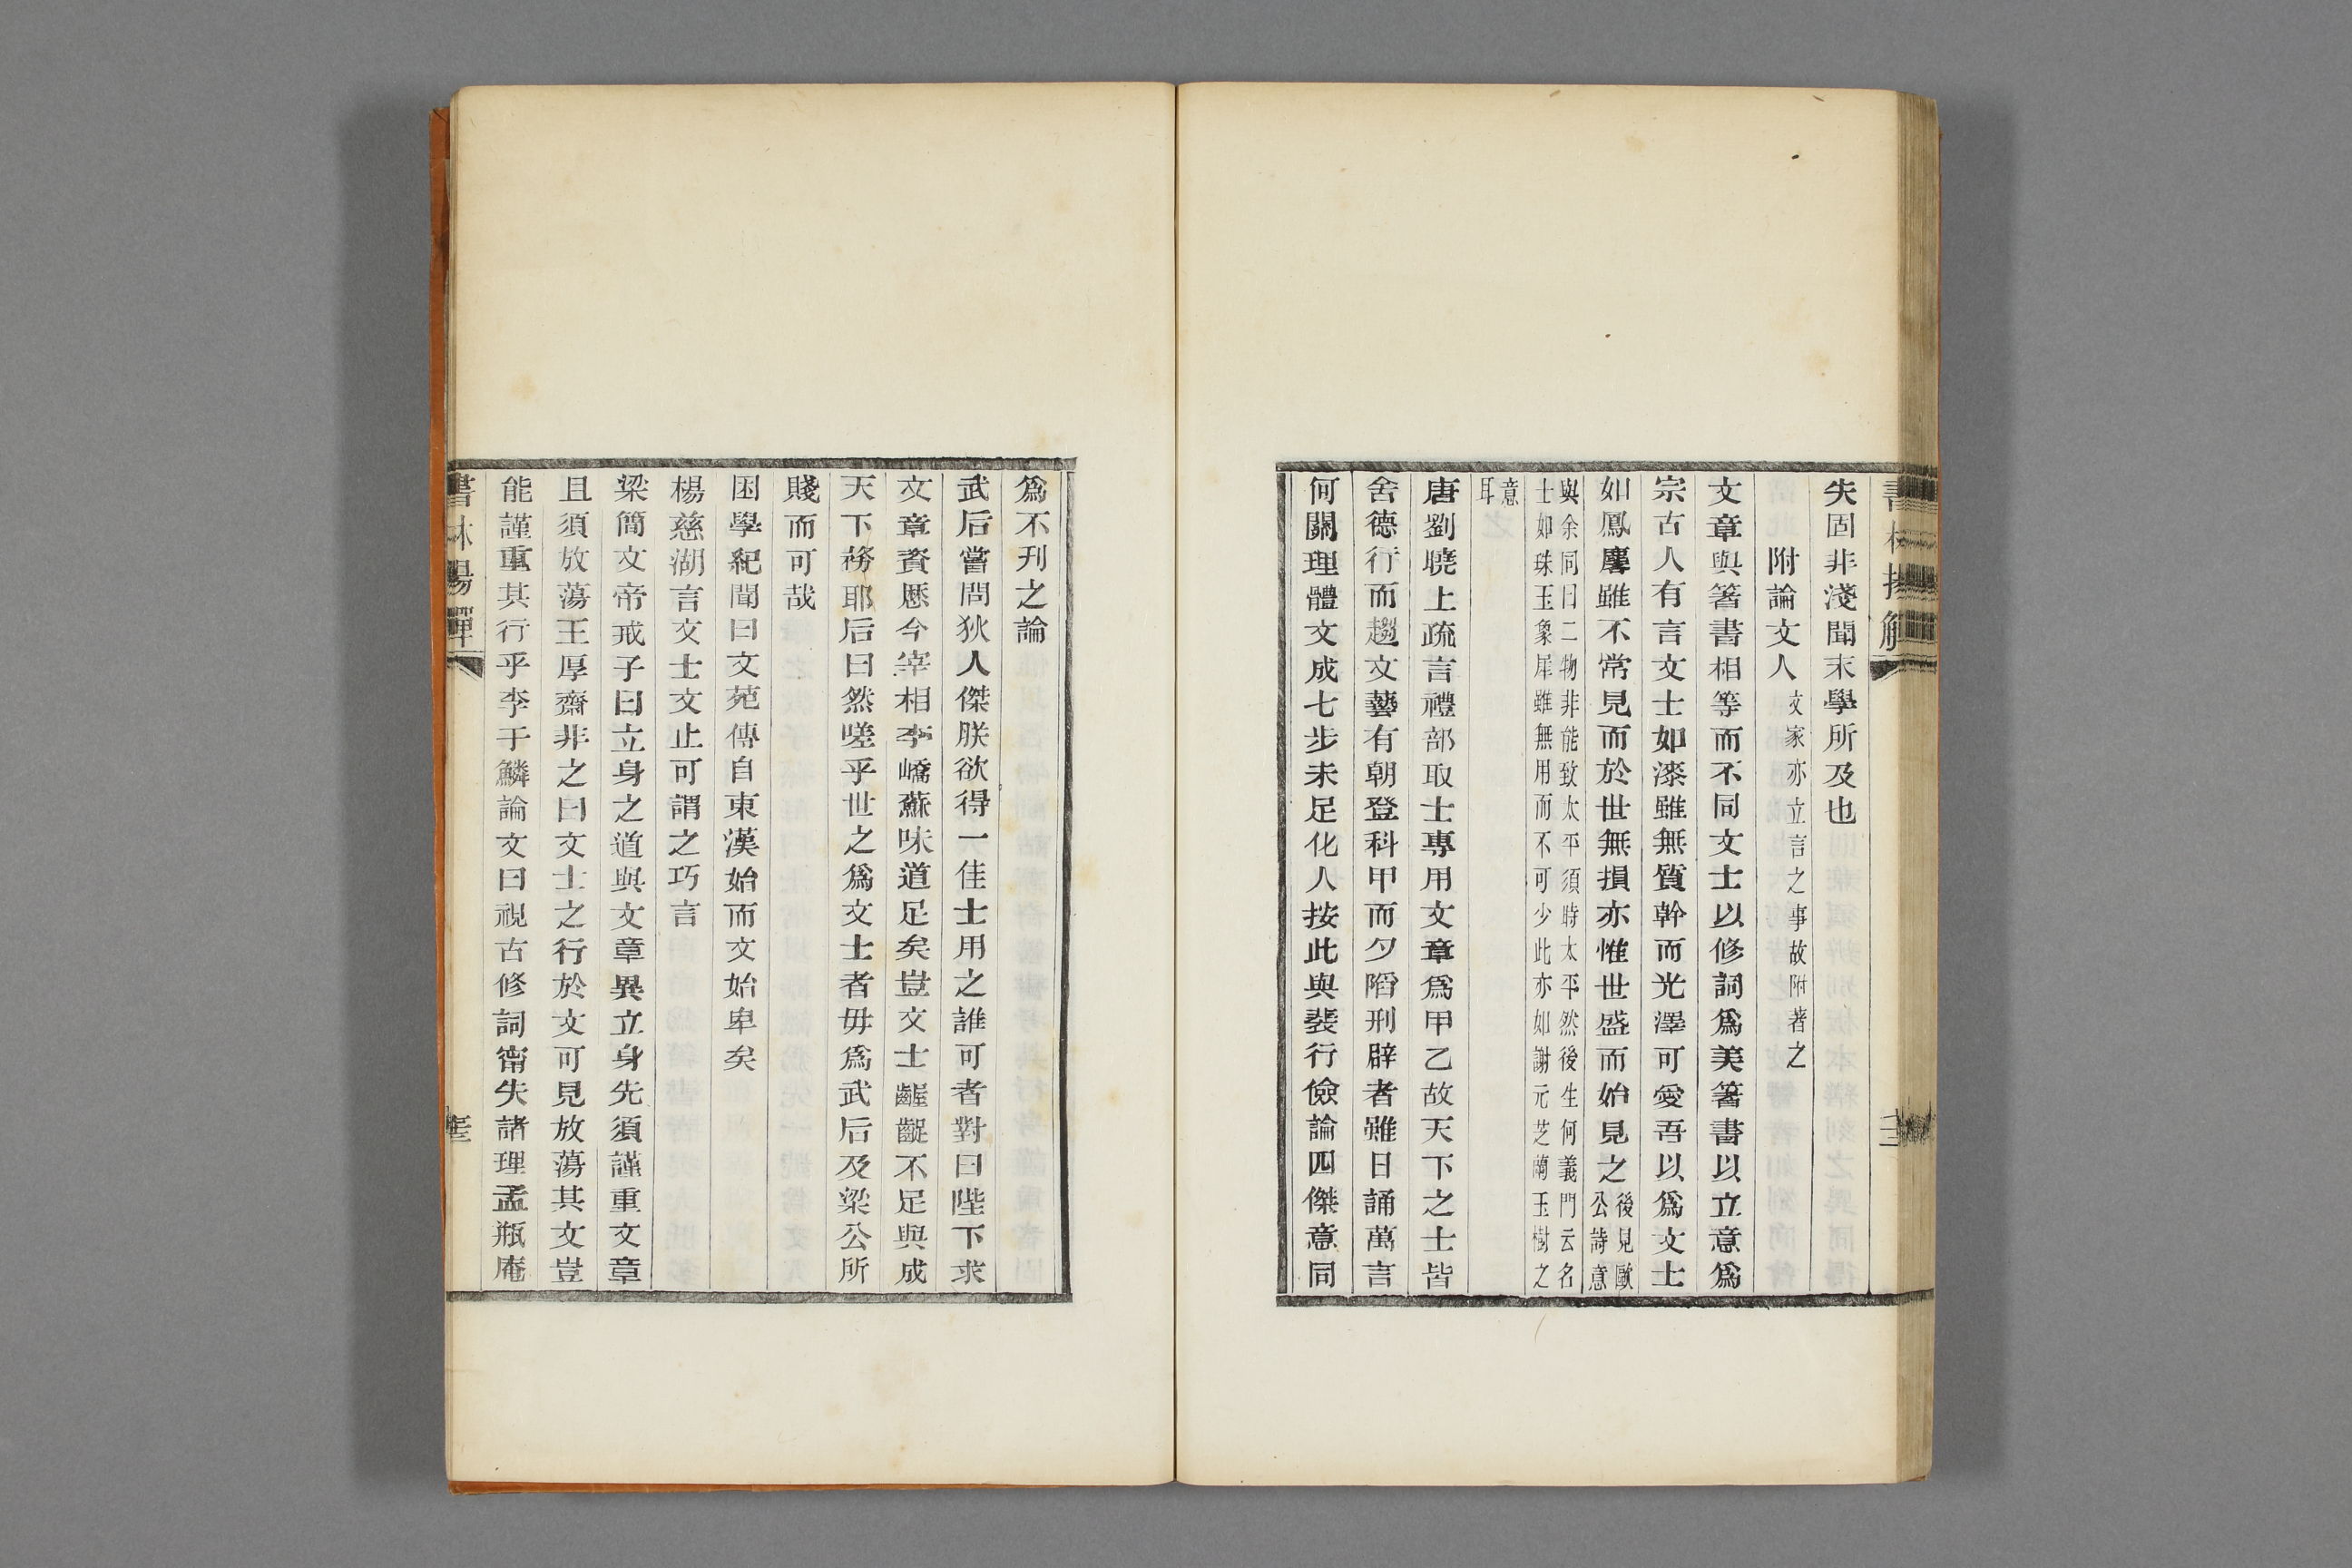 失固非淺聞末學所及也
附論文人文家亦立言之事故附著之
文章與著書相等而不同文士以修詞爲美著書以立意爲
宗古人有言文士如漆雖無質幹而光澤可愛吾以爲文士
如鳳麐雖不常見而於世無損亦惟世盛而始見之後見歐公詩意
與余同曰二物非能致太平須時太平然後生何義門云名
士如珠玉象犀雖無用而不可少此亦如謝元芝蘭玉樹之
意
耳
唐劉曉上疏言禮部取士專用文章爲甲乙故天下之士皆
舍德行而趨文藝有朝登科甲而夕陷刑辟者雖日誦萬言
何關理體文成七步未足化人按此與裴行儉論四傑意同
爲不刊之論
武后嘗問狄人傑朕欲得一佳士用之誰可者對曰陛下求
文章資歷今宰相李嶠蘇味道足矣豈文士齷齪不足與成
天下務耶后曰然嗟乎世之爲文士者毋爲武后及梁公所
賤而可哉
困學紀聞曰文苑傳自東漢始而文始卑矣
楊慈湖言文士文止可謂之巧言
梁簡文帝戒子曰立身之道與文章異立身先須謹重文章
且須放蕩王厚齋非之曰文士之行於文可見放蕩其文豈
能謹重其行乎李于鱗論文曰視古修詞甯失諸理孟瓶庵
書林揚觶